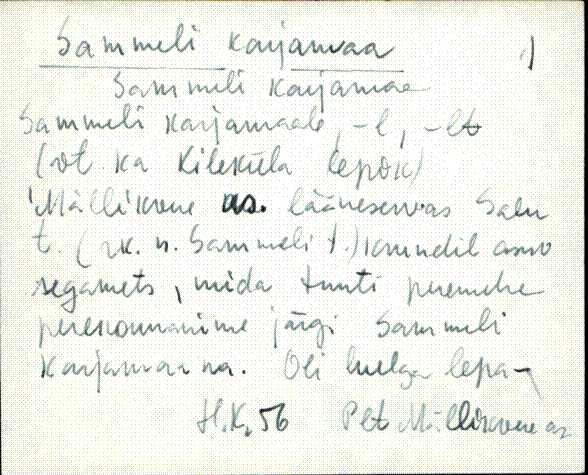 Sammeli karjamaa
Sammeli karjamaa
Sammeli karjamaale, -l, -lt
(vt. ka Kileküla lepik)
Mällikvere as. lääneservas Salu
t. (rk. n. Sammeli t.) krundil asuv
segamets, mida tunti peremehe
perekonnanime järgi Sammeli
karjamaana. Oli hulga lepa-
H.K. 56 Plt Mällikvere as